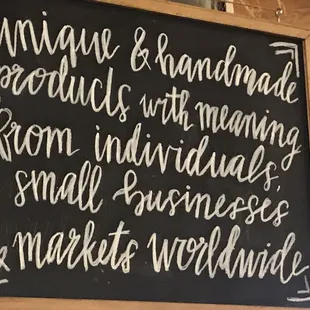 unique & handmade
products with meaning
from individuals,
small businesses
& markets worldwide